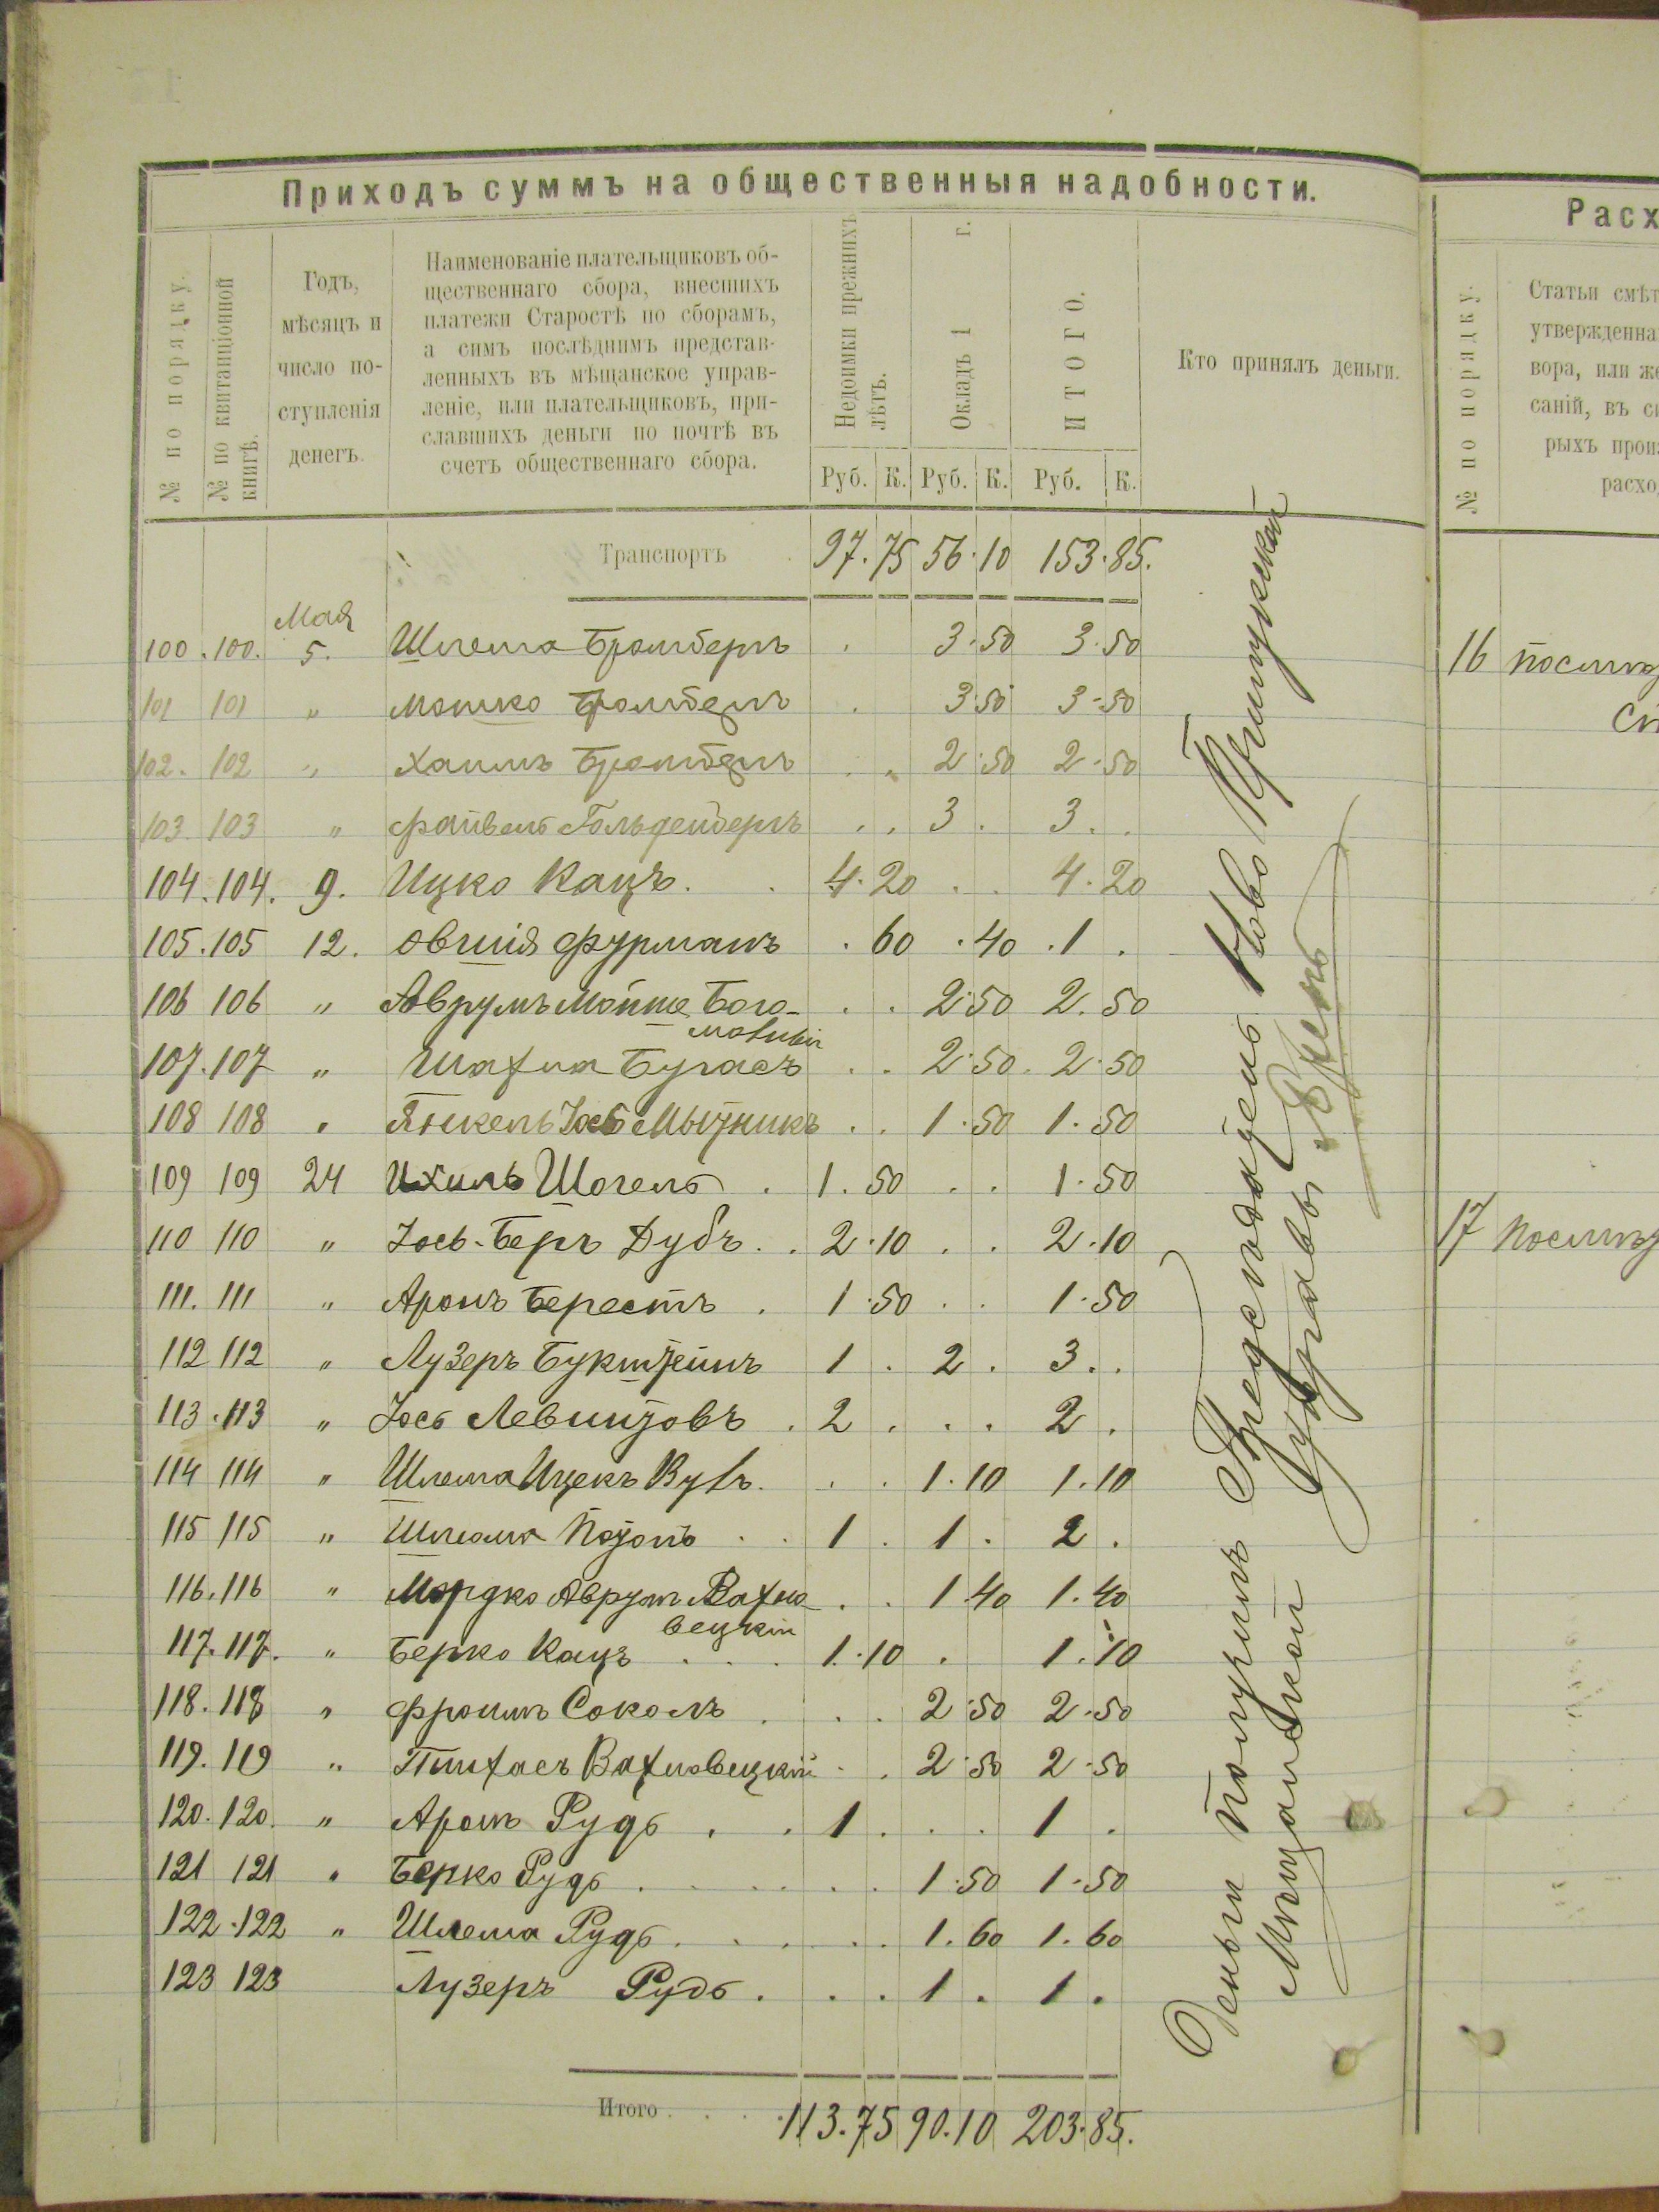 Приходъ суммъ на общественныя надобности.
№ по порядку.
№ по квитанціонной
книгѣ.
Годъ,
мѣсяцъ и
число по-
ступленія
денегъ.
Наименованіе плательщиковъ об-
щественнаго сбора, внесшихъ
платежи Старостѣ по сборамъ,
а симъ послѣднимъ представ-
ленныхъ въ мѣщанское управ-
леніе, или плательщиковъ, при-
славшихъ деньги по почтѣ въ
счетъ общественнаго сбора.
Недоимки прежнихъ
лѣтъ.
Окладъ 1 г.
ИТОГО.
Кто принялъ деньги.
Руб. К. Руб. К. Руб. К.
Транспортъ 97.75 56.10 153.85.
Мая
100. 100. 5. Шлема Бромберъ . 3.50 3.50
101 101 " Мошко Бромберъ . 3.50 3.50
102. 102 " Хаимъ Бромберъ . . 2.50 2.50
103 103 " Файвель Гольденберъ . . 3. 3. .
104. 104. 9. Ицко Кацъ. . 4.20 . . 4.20
105. 105 12. Овшія Фурманъ . 60 . 40 . 1 .
106 106 " Аврумъ Мойше Бого- . . 2.50 2.50
мольній
107. 107 " Шахна Бугасъ . . 2.50. 2.50
108 108 " Янкель Іось Мытникъ . . 1.50 1.50
109 109 24 Ихиль Шогель . 1.50 . . 1.50
110 110 " Іось-Беръ Дубъ . . 2.10 . . 2.10
111. 111 " Аронъ Берестъ . 1.50 . . 1.50
112 112 " Лузеръ Букштейнъ 1 . 2 . 3 . .
113. 113 " Іось Левшизовъ . 2 . . . 2 .
114 114 " Шлема Ицекъ Вувъ. . . 1.10 1.10
115 115 " Шлема . . 1 . 1 . 2 .
116. 116 " Мордко Аврум Вахно- . . 1.40 1.40
вецкій
117. 117. " Берко Кацъ . . . 1.10 . 1.10
118. 118 " Фроимъ Соколъ . . . 2.50 2.50
119. 119 " Пинхасъ Вахновецкій . . 2.50 2.50
120. 120. " Аронъ Рудь . . 1 . . . 1 .
121 121 " Берко Рудь . . . . . . 1.50 1.50
122. 122 " Шлема Рудь . . . . . 1.60 1.60
123 123 Лузеръ Рудь . . . 1 . 1 .
Итого . . . . 113.75 90.10 203.85.
Деньги получилъ Предсѣдатель Ново
Мѣщанской Управы
Расх
№ по порядку.
Статьи смѣт
утвержденна
вора, или же
саній, въ си
рыхъ произ
расход
16
17